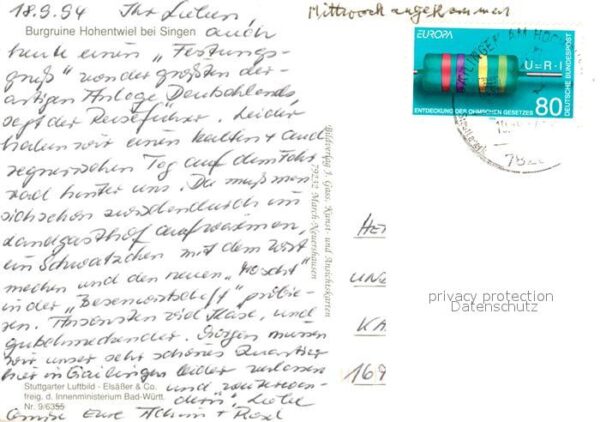 18.9.94 Ihr Lieben
Mittwoch angekommen
Burgruine Hohentwiel bei Singen
auch
heute einen "Festungs-
gruß" von der größten der-
artigen Anlage Deutschlands,
sagt der Reiseführer. Leider
haben wir einen kalten + auch
regnerischen Tag auf dem Fahr
rad hinter uns. Da muß man
sich schon zwischendurch im
Landgasthof aufwärmen,
ein Schwätzchen mit dem Wirt
machen und den neuen "Most"
in der "Besenwirtschaft" probie-
ren. Ansonsten viel Käse, und
gutschmeckender. Morgen müssen
wir unser sehr schönes Quartier
hier in Gailingen leider verlassen
und "weiterwan-
dern". Liebe
Grüße Eure Achim + Rosel
Stuttgarter Luftbild - Elsäßer & Co.
freig. d. Innenministerium Bad-Württ.
Nr. 9/6355
Bildverlag J. Gass, Kunst- und Ansichtskarten
79232 March-Neuershausen
EUROPA
U=R·I
ENTDECKUNG DES OHMSCHEN GESETZES
80
DEUTSCHE BUNDESPOST
GAILINGEN AM HOCHRHEIN
HE
UN
KA
169
privacy protection
Datenschutz